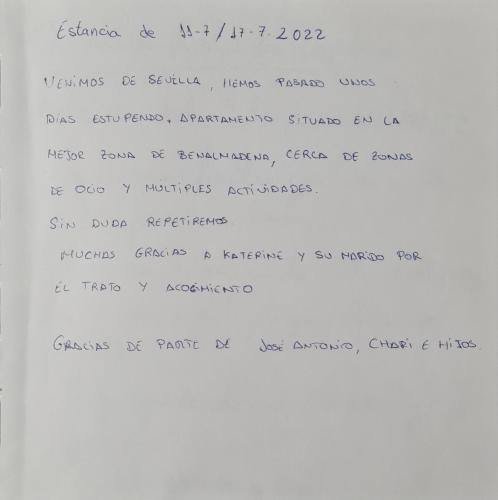 Estancia de 11-7/17-7-2022
VENIMOS DE SEVILLA, HEMOS PASADO UNOS
DÍAS ESTUPENDO, APARTAMENTO SITUADO EN LA
MEJOR ZONA DE BENALMADENA, CERCA DE ZONAS
DE OCIO Y MULTIPLES ACTIVIDADES.
SIN DUDA REPETIREMOS.
MUCHAS GRACIAS A KATERINE Y SU MARIDO POR
EL TRATO Y ACOGIMIENTO
GRACIAS DE PARTE DE JOSÉ ANTONIO, CHARI E HIJOS.